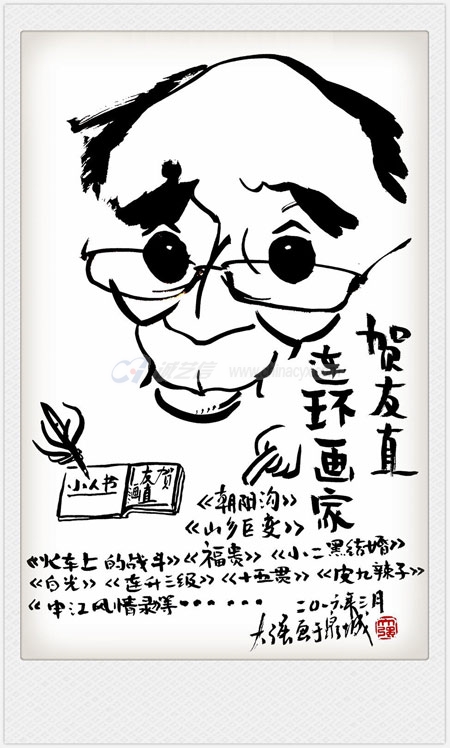 贺友直
连环画家
诚艺信
小人书
贺友直画
《朝阳沟》
《山乡巨变》
《火车上的战斗》《福贵》《小二黑结婚》
《白光》《连升三级》《十五贯》《皮九辣子》
《申江风情录等……
二〇一六年三月
大强画于泉城